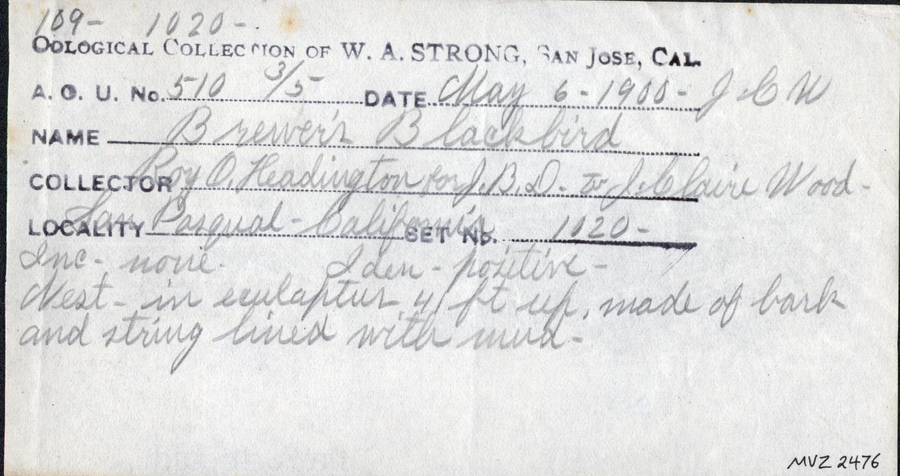 109- 1020-.
OOLOGICAL COLLECTION OF W. A. STRONG, SAN JOSE, CAL.
A. O. U. No. 510 3/5 DATE May 6 - 1900 - J C W
NAME Brewer's Blackbird
COLLECTOR Roy O. Headington for J. B. D. to J. Claire Wood-
LOCALITY San Pasqual - California SET No. 1020-
Inc - none. Iden - positive -
Nest - in eculaptus 4 ft up, made of bark
and string lined with mud-
MVZ 2476